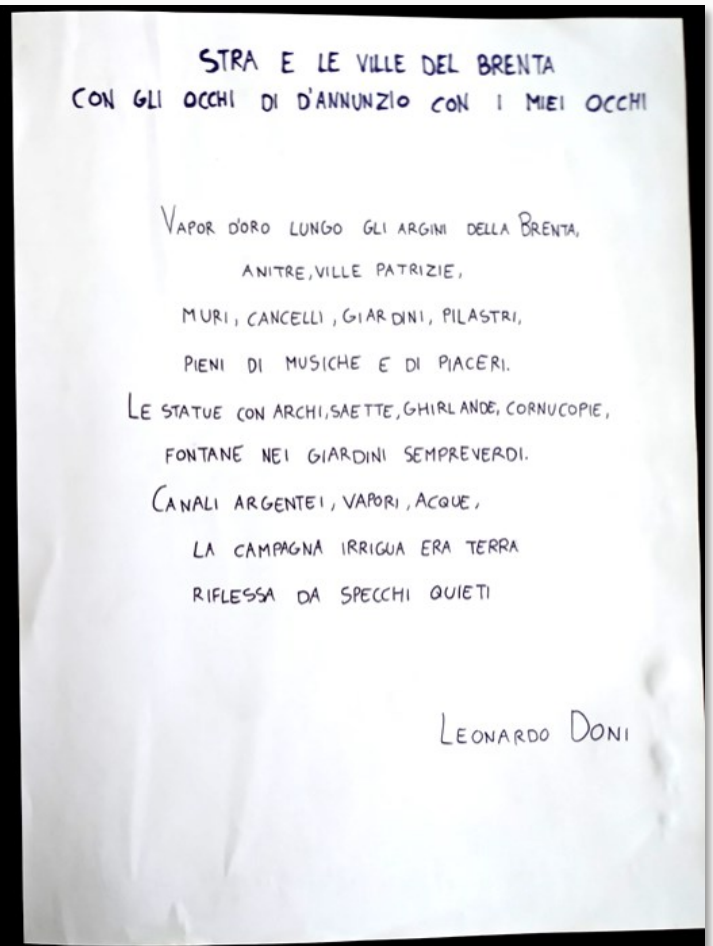 STRA E LE VILLE DEL BRENTA
CON GLI OCCHI DI D'ANNUNZIO CON I MIEI OCCHI
VAPOR D'ORO LUNGO GLI ARGINI DELLA BRENTA,
ANITRE, VILLE PATRIZIE,
MURI, CANCELLI, GIARDINI, PILASTRI,
PIENI DI MUSICHE E DI PIACERI.
LE STATUE CON ARCHI, SAETTE, GHIRLANDE, CORNUCOPIE,
FONTANE NEI GIARDINI SEMPREVERDI.
CANALI ARGENTEI, VAPORI, ACQUE,
LA CAMPAGNA IRRIGUA ERA TERRA
RIFLESSA DA SPECCHI QUIETI
LEONARDO DONI